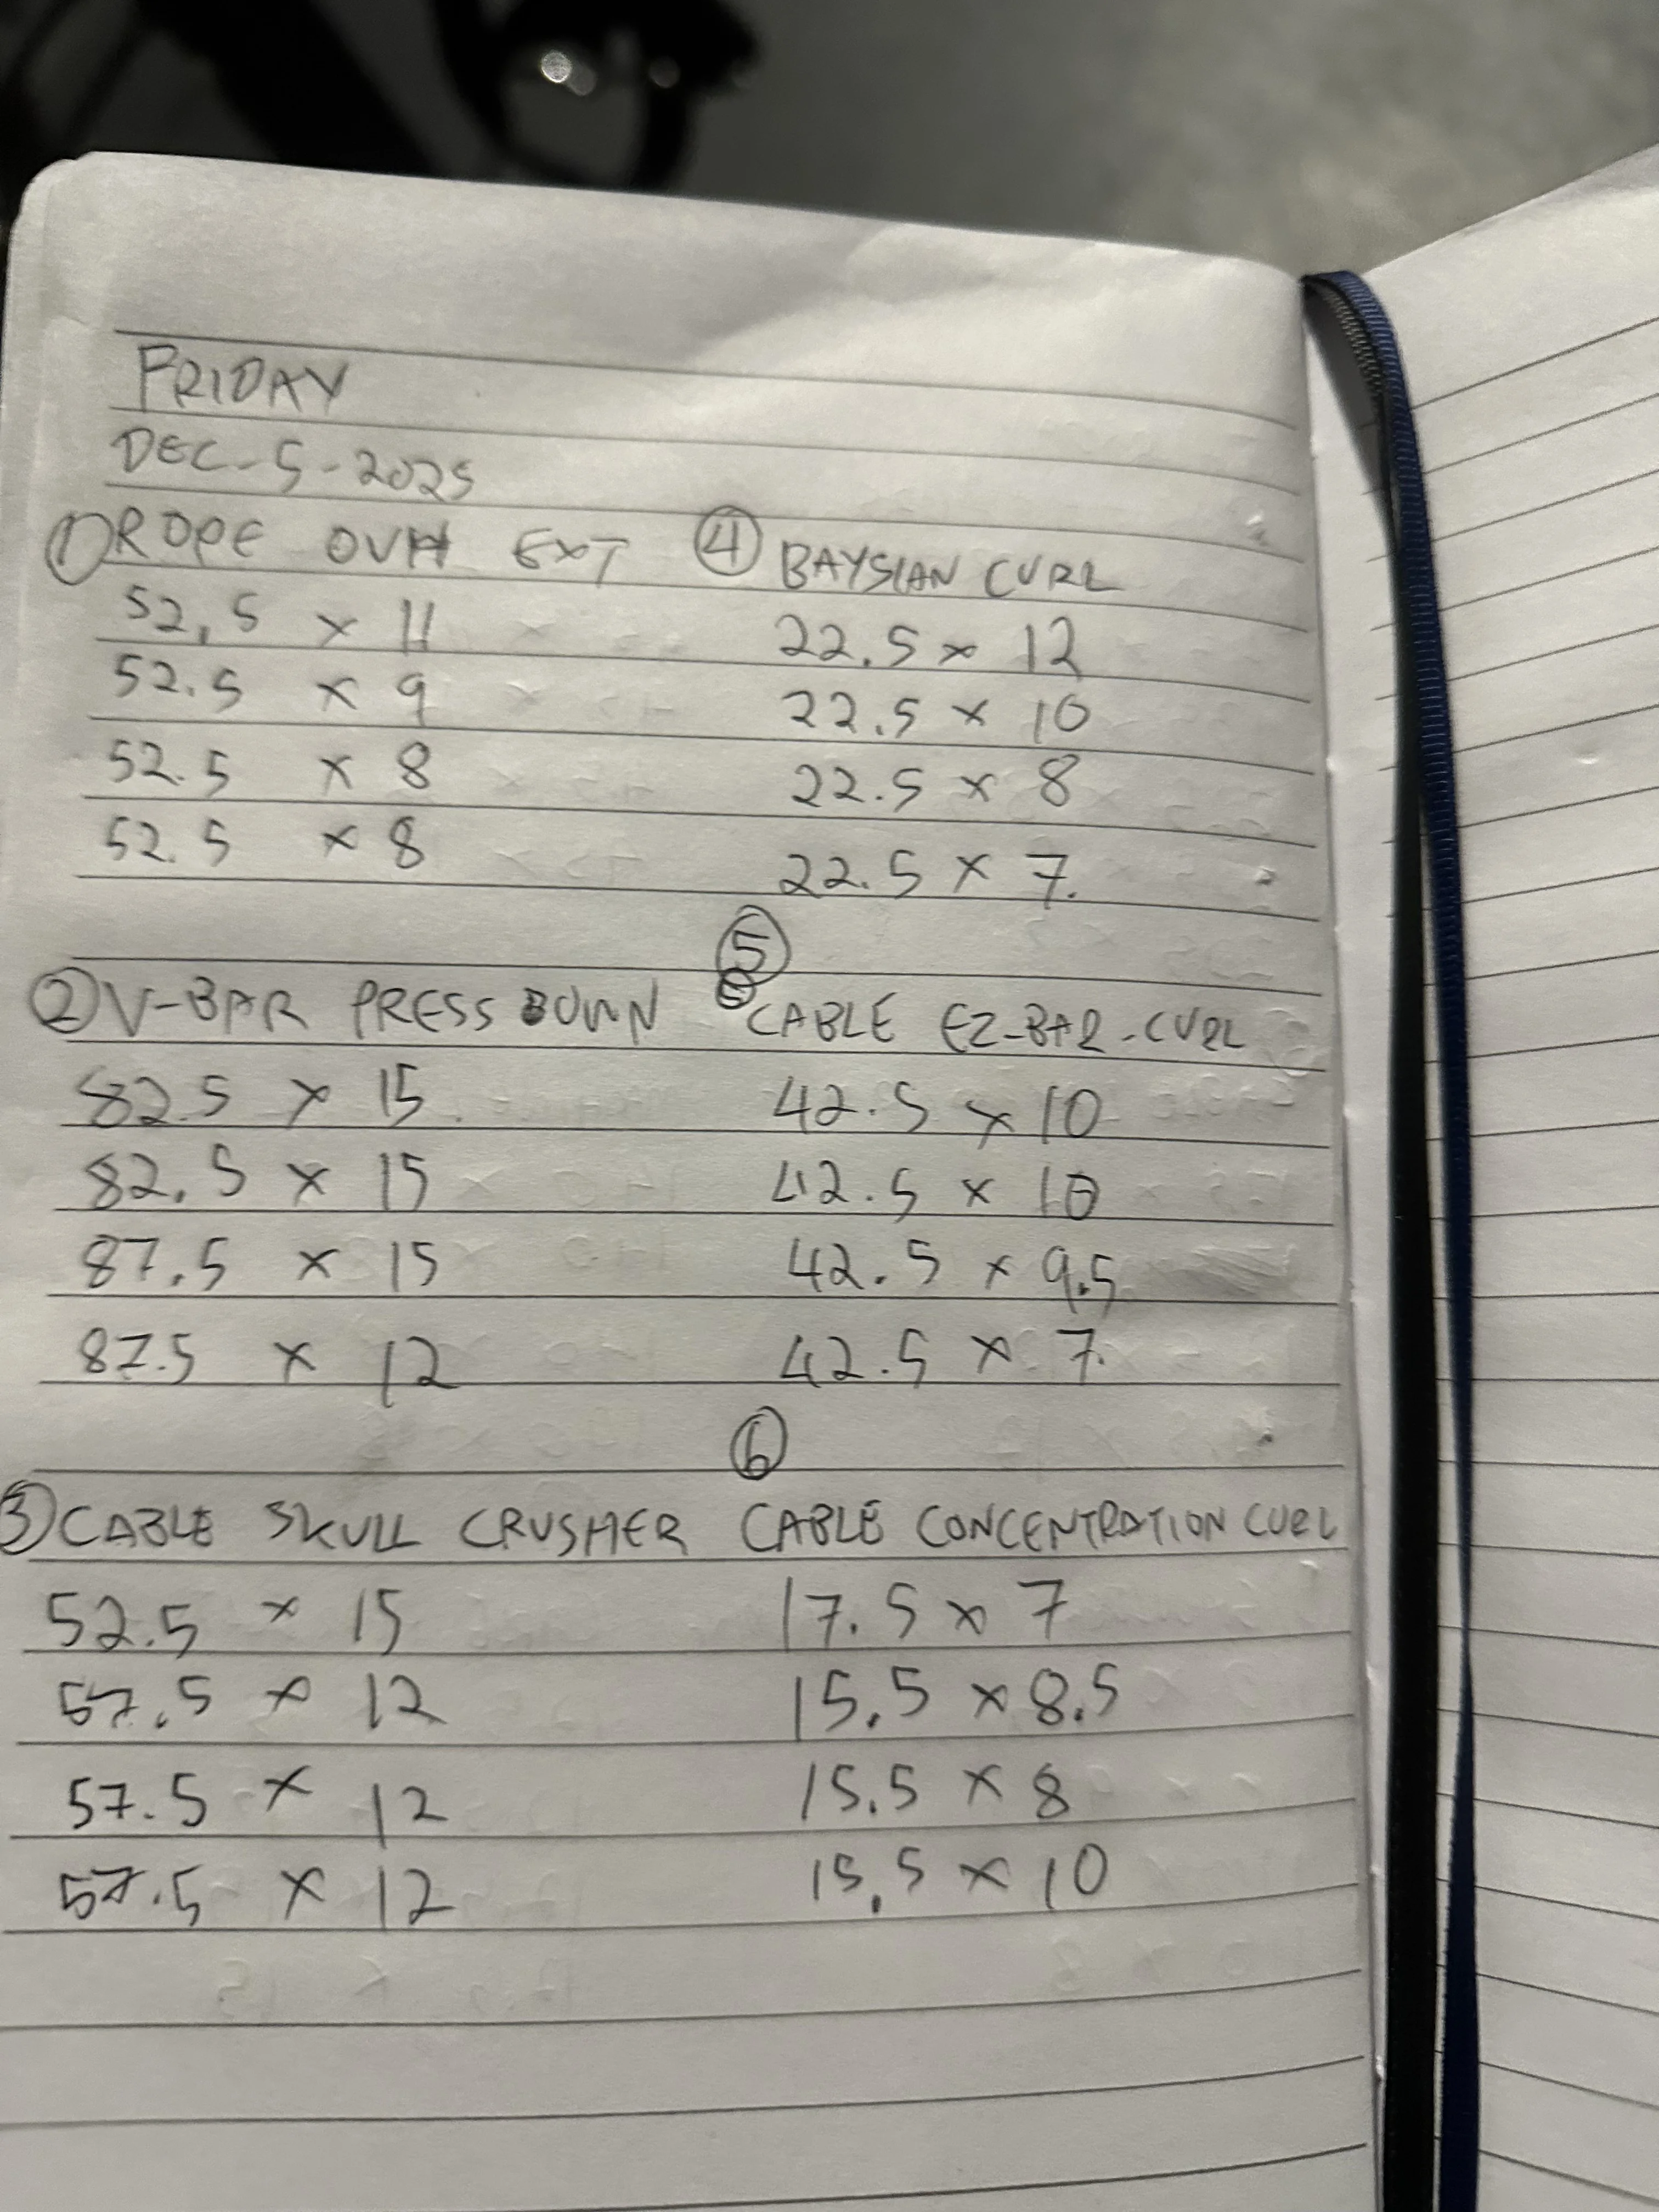 FRIDAY
DEC-5-2025
① ROPE OVH EXT
52.5 x 11
52.5 x 9
52.5 x 8
52.5 x 8
② V-BAR PRESS DOWN
82.5 x 15
82.5 x 15
87.5 x 15
87.5 x 12
③ CABLE SKULL CRUSHER
52.5 x 15
57.5 x 12
57.5 x 12
57.5 x 12
④ BAYSIAN CURL
22.5 x 12
22.5 x 10
22.5 x 8
22.5 x 7.
⑤
CABLE EZ-BAR-CURL
42.5 x 10
42.5 x 10
42.5 x 9.5
42.5 x 7.
⑥
CABLE CONCENTRATION CURL
17.5 x 7
15.5 x 8.5
15.5 x 8
15.5 x 10